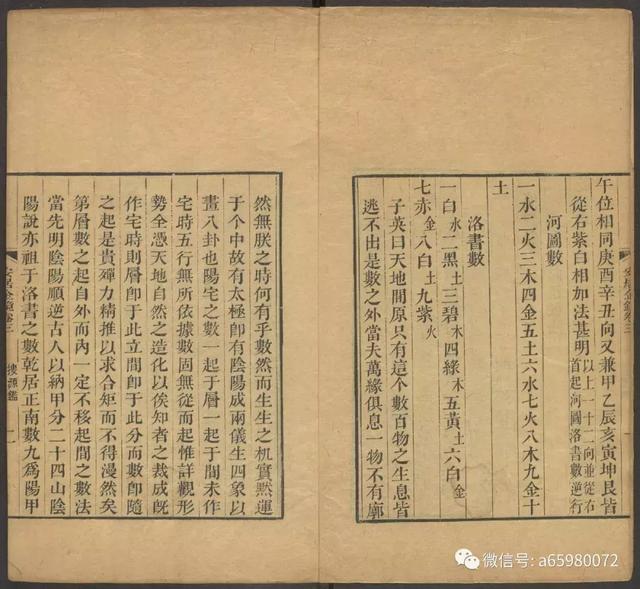 午位相同庚酉辛丑向又兼甲乙辰亥寅坤艮皆
從右紫白相加法甚明以上一十二向並從右
首起河圖洛書數逆行
河圖數
一水二火三木四金五土六水七火八木九金十
土
洛書數
一白水二黑土三碧木四綠木五黃土六白金
七赤金八白土九紫火
子英曰天地間原只有這个數百物之生息皆
逃不出是數之外當夫萬緣俱息一物不有廓
然無朕之時何有乎數然而生生之机實黙運
于个中故有太極卽有陰陽成兩儀生四象以
畫八卦也陽宅之數一起于層一起于間未作
宅時五行無所依據數固無從而起惟詳觀形
勢全憑天地自然之造化以俟知者之裁成旣
作宅時則層卽于此立間卽于此分而數卽隨
之起是貴殫力精推以求合矩而不得漫然矣
第層數之起自外而內一定不移起間之數法
當先明陰陽順逆古人以納甲分二十四山陰
陽說亦祖于洛書之數乾居正南數九爲陽甲
安居金鏡卷三
微信号: a65980072